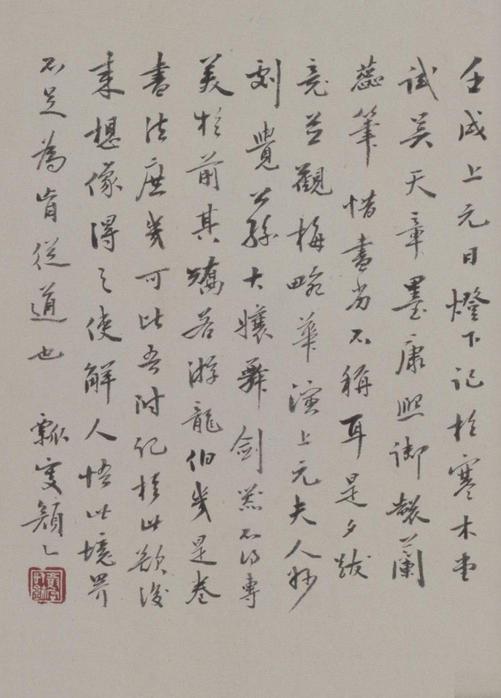 壬戌上元日燈下記於寒木堂
試吳天章墨康熙御製蘭
蕊筆惜書劣不稱耳是夕跋
竟並觀梅畹華演上元夫人妙
劇覺公孫大孃舞劍器不得專
美於前其矯若游龍伯幾是卷
書法庶幾可比吾附記於此欲後
來想像得之使解人悟此境界
不足為肓從道也 瓢叟顏